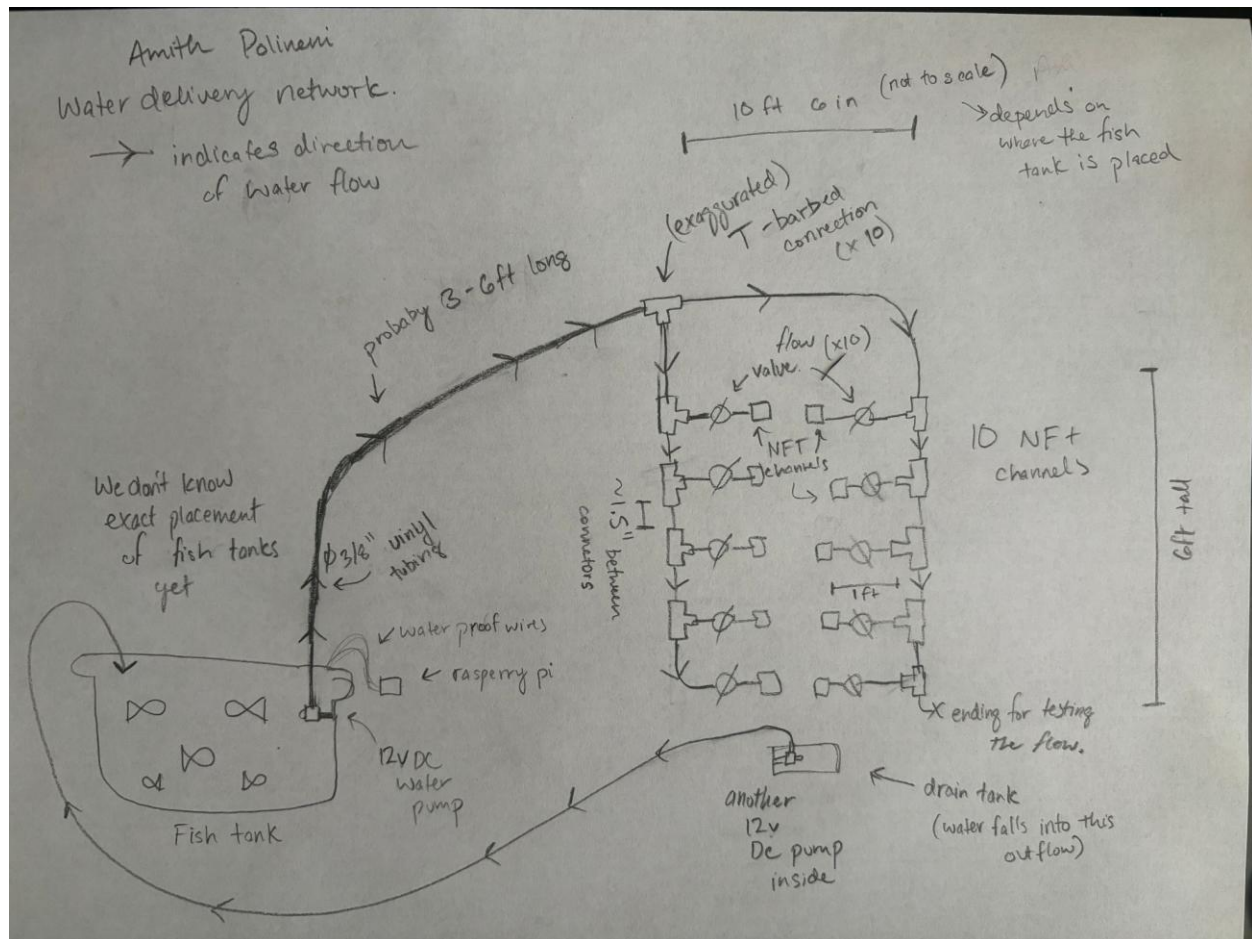 Amith Polineni
Water delivery network.
indicates direction
of water flow
10 ft 6 in (not to scale)
depends on
where the fish
tank is placed
(exaggurated)
T-barbed
connection
(x 10)
probaby 3-6ft long
flow (x10)
valve
NFT
channels
10 NFt
channels
6ft tall
~1.5" between
connetors
1ft
We don't know
exact placement
of fish tanks
yet
φ3/8" vinyl
tubing
water proof wires
rasperry pi
12V DC
water
pump
Fish tank
X ending for testing
the flow.
another
12v
Dc pump
inside
drain tank
(water falls into this
outflow)